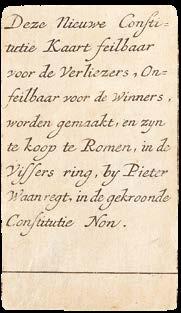 Deze Nieuwe Consti-
tutie Kaart feilbaar
voor de Verliezers, On-
feilbaar voor de Winners,
worden gemaakt, en zyn
te koop te Romen, in de
Vissers ring, by Pieter
Waanregt, in de gekroonde
Constitutie Non.